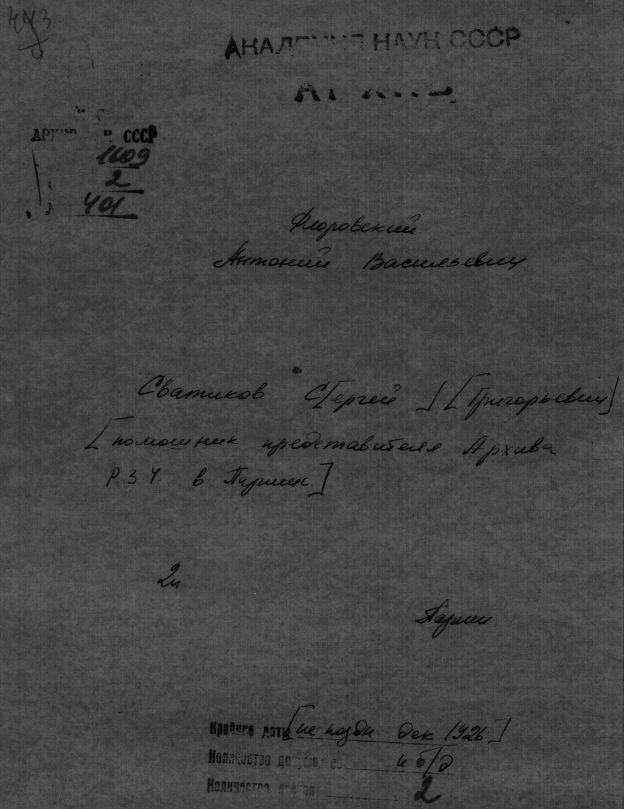 473
АКАДЕМИЯ НАУК СССР
АРХИВ
АРХИВ СССР
1609
2
401
Флоровский
Антоний Васильевич
Сватиков С[ергей] [Григорьевич]
[помошник представителя Архива
Р З И в Париже]
2п
Париж
Крайние даты [не поздн дек 1926]
Количество документов и б/д
Количество листов 2